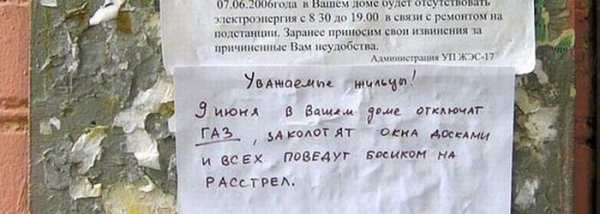 07.06.2006года в Вашем доме будет отсутствовать
электроэнергия с 8 30 до 19.00 в связи с ремонтом на
подстанции. Заранее приносим свои извинения за
причиненные Вам неудобства.
Администрация УП ЖЭС-17
Уважаемые жильцы!
9 июня в Вашем доме отключат
ГАЗ, заколотят окна досками
и всех поведут босиком на
расстрел.